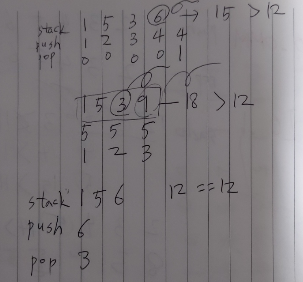 stack 1 5 3 6 → 15 > 12
push 1 2 3 4 4
pop 0 0 0 0 1
1 5 3 9 — 18 > 12
5 5 5
1 2 3
stack 1 5 6 12 == 12
push 6
pop 3